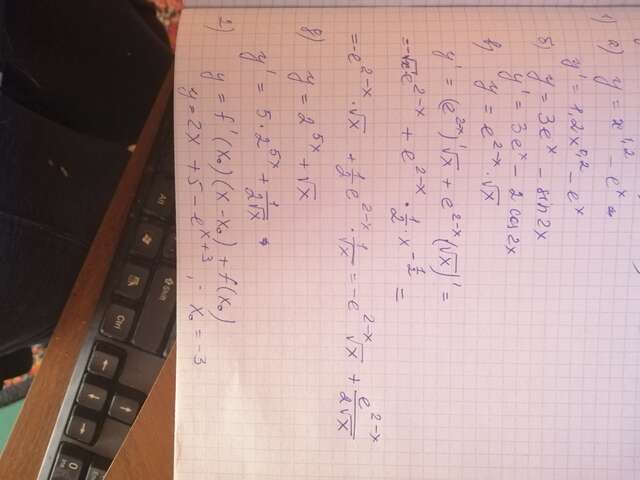 1) а) y = x^1,2 - e^x
y' = 1,2x^0,2 - e^x
б) y = 3e^x - sin2x
y' = 3e^x - 2cos2x
в) y = e^2-x · √x
y' = (e^2-x)'√x + e^2-x(√x)' =
= -√x e^2-x + e^2-x · 1/2 x^-1/2 =
= -e^2-x · √x + 1/2 e^2-x · 1/√x = -e^2-x √x + e^2-x/2√x
г) y = 2^5x + √x
y' = 5 · 2^5x + 1/2√x
2) y = f'(x₀)(x-x₀) + f(x₀)
y = 2x + 5 - e^x+3; x₀ = -3
Alt
Ctrl
0
Ins